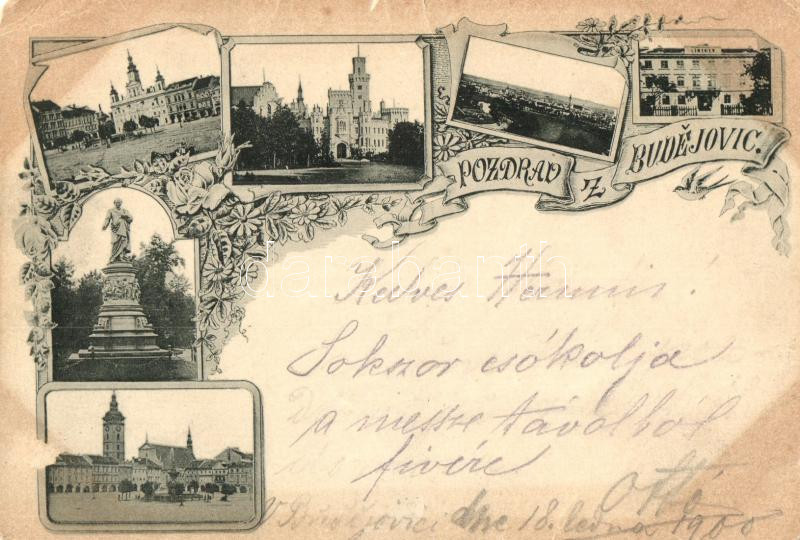 LINEHEN
POZDRAV Z BUDĚJOVIC.
darabanth
Kedves Hammis!
Sokszor csókolja
a messze távolból
fivére
Ottó
V Budějovici dne 18. ledna 1900